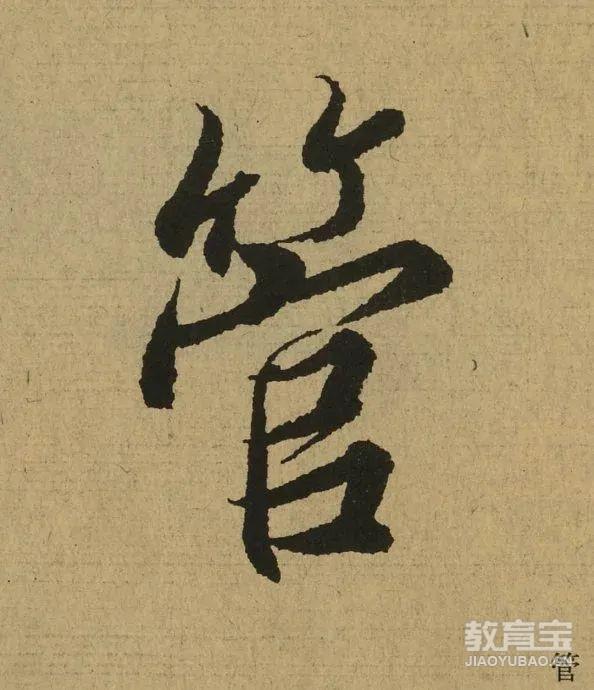 管
教育宝
JIAOYUBAO.CN
管